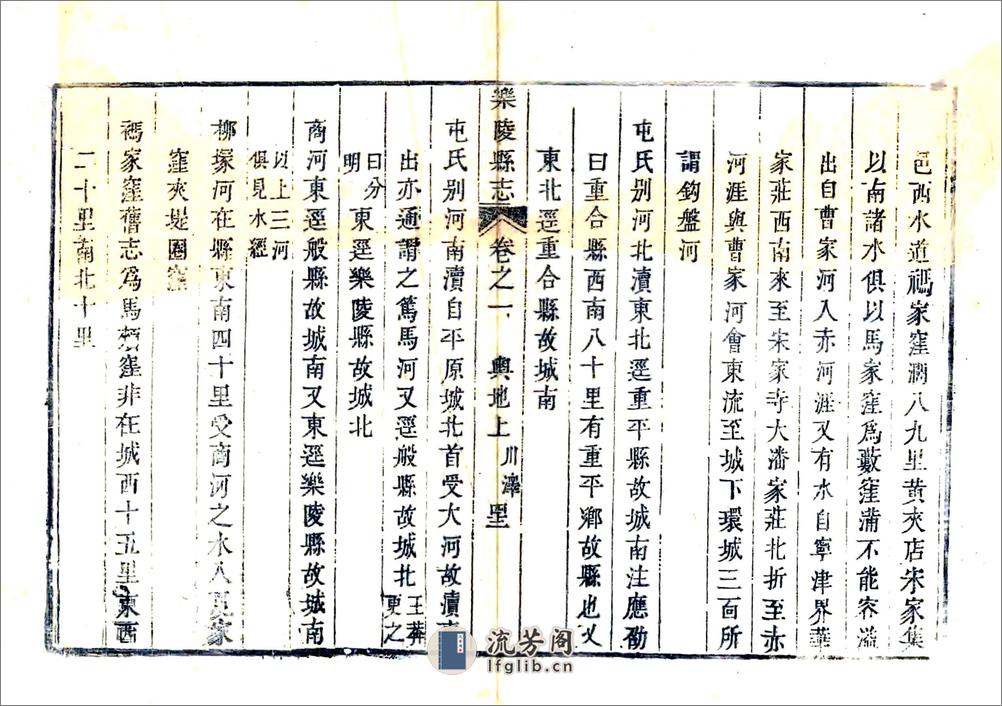 邑西水道禡家窪濶八九里黃夾店宋家集
以南諸水俱以馬家窪爲藪窪蒲不能容溢
出自曹家河入赤河涯又有水自寧津界華
家莊西南來至宋家寺大潘家莊北折至赤
河涯與曹家河會東流至城下環城三面所
謂鈎盤河
屯氏别河北瀆東北逕重平縣故城南注應劭
曰重合縣西南八十里有重平鄕故縣也又
東北逕重合縣故城南
樂陵縣志 卷之一 輿地上 川澤
屯氏别河南瀆自平原城北首受大河故瀆東
出亦通謂之篤馬河又逕般縣故城北王莽更之
曰分明東逕樂陵縣故城北
商河東逕般縣故城南又東逕樂陵縣故城南
以上三河俱見水經
柳塚河在縣東南四十里受商河之水入夏家
窪夾堤圈窪
禡家窪舊志爲馬頰窪非在城西十五里東西
二十里南北十里
流芳阁
lfglib.cn